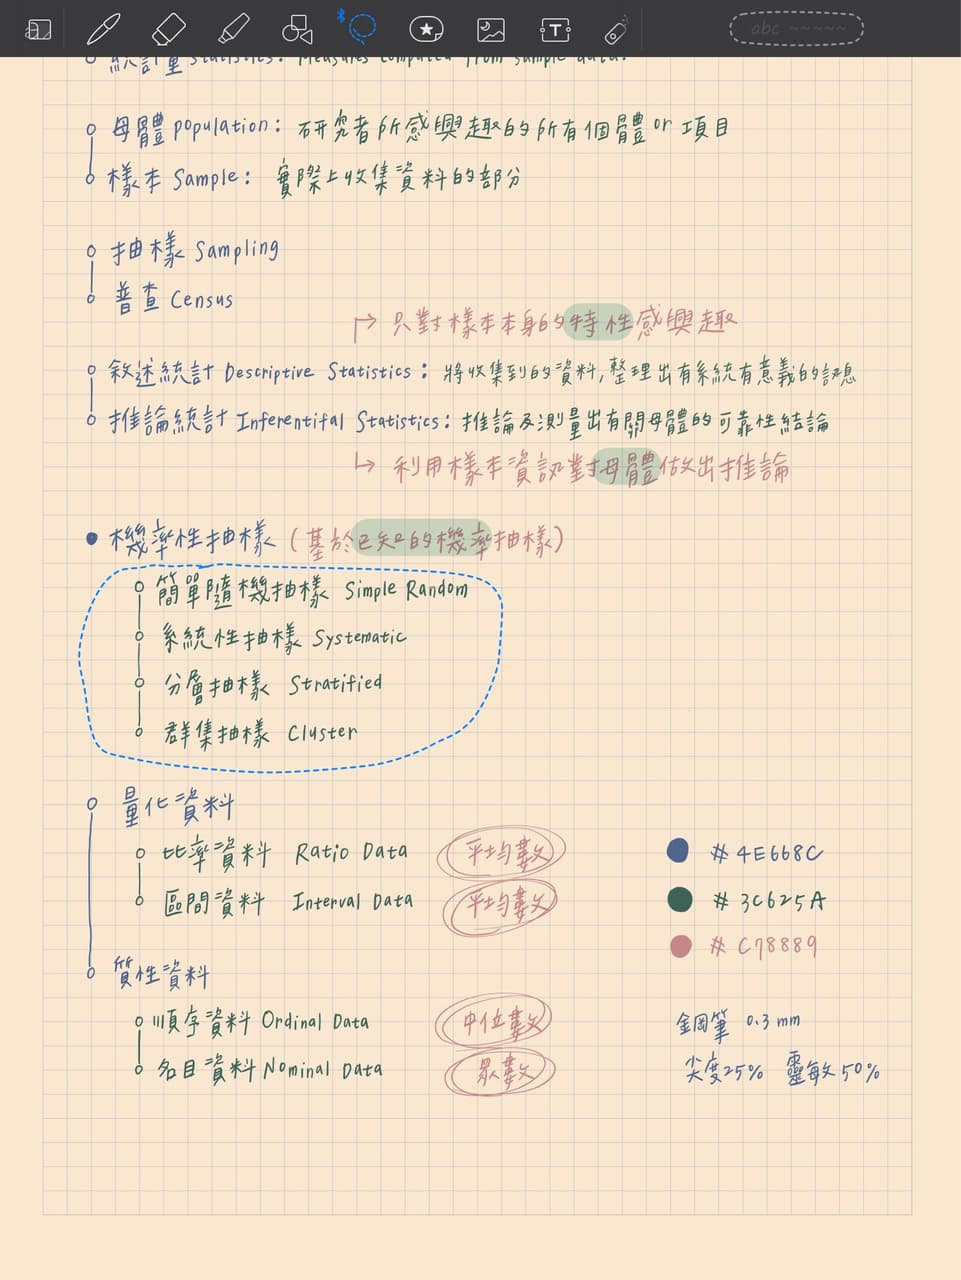 統計量 Statistics: Measures computed from sample data.
母體 population: 研究者所感興趣的所有個體 or 項目
樣本 Sample: 實際上收集資料的部分
抽樣 Sampling
普查 Census
只對樣本本身的特性感興趣
敘述統計 Descriptive Statistics: 將收集到的資料,整理出有系統有意義的訊息
推論統計 Inferentifal Statistics: 推論及測量出有關母體的可靠性結論
利用樣本資訊對母體做出推論
機率性抽樣 (基於已知的機率抽樣)
簡單隨機抽樣 Simple Random
系統性抽樣 Systematic
分層抽樣 Stratified
群集抽樣 Cluster
量化資料
比率資料 Ratio Data 平均數
# 4E668C
區間資料 Interval Data 平均數
# 3C625A
# C78889
質性資料
順序資料 Ordinal Data 中位數
鋼筆 0.3 mm
名目資料 Nominal Data 眾數
尖度25% 靈敏50%